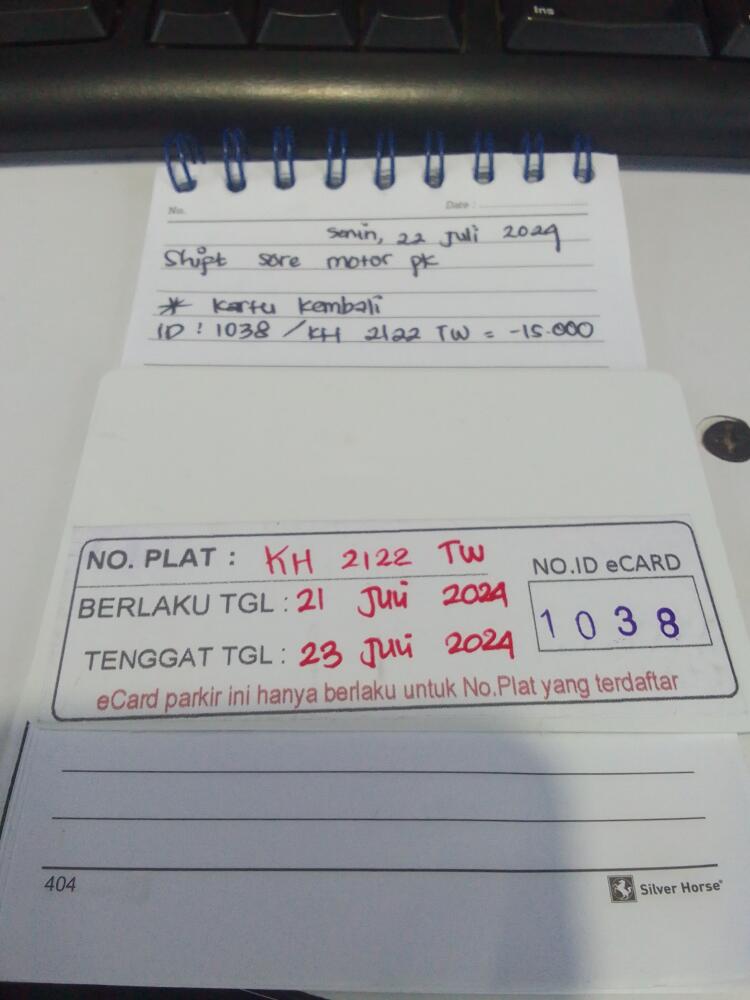 Ins
No.
Date :
Senin, 22 Juli 2024
Shipt sore motor pk
* Kartu Kembali
ID : 1038 / KH 2122 TW = -15.000
NO. PLAT : KH 2122 TW
BERLAKU TGL : 21 Juli 2024
TENGGAT TGL : 23 Juli 2024
NO.ID eCARD
1038
eCard parkir ini hanya berlaku untuk No.Plat yang terdaftar
404
Silver Horse